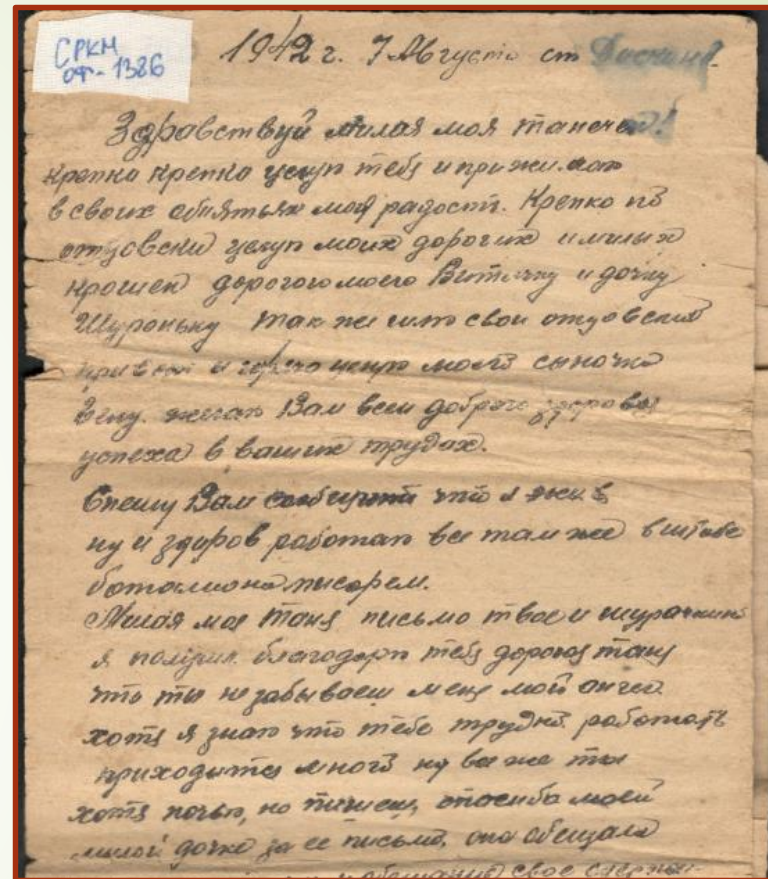 СРКМ
оф-1386
1942 г. 7 Августа ст
Здравствуй милая моя танечка!
крепко крепко целую тебя и прижимаю
в своих обнятьях моя радость. Крепко по
отцовски целую моих дорогих и милых
крошек дорогого моего Витичку и дочку
Шуроньку так же шлю свой отцовский
привет и горячо целую моего сыночка
Вену. желаю Вам всем доброго здоровья
успеха в ваших трудах.
Спешу Вам сообщить что я жив
ну и здоров работаю все там же в штабе
баталиона писарем.
Милая моя Таня письмо твое и шурочкино
я получил. благодарю тебя дорогая таня
что ты не забываеш меня мой
хотя я знаю что тебе трудно работать
приходится много ну все же ты
хотя ночью, но пишеш, спасибо моей
милой дочке за ее письмо, она обещала
обещание свое